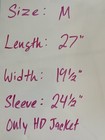 Size: M
Length: 27"
Width: 19½"
Sleeve: 24½"
Only HD Jacket